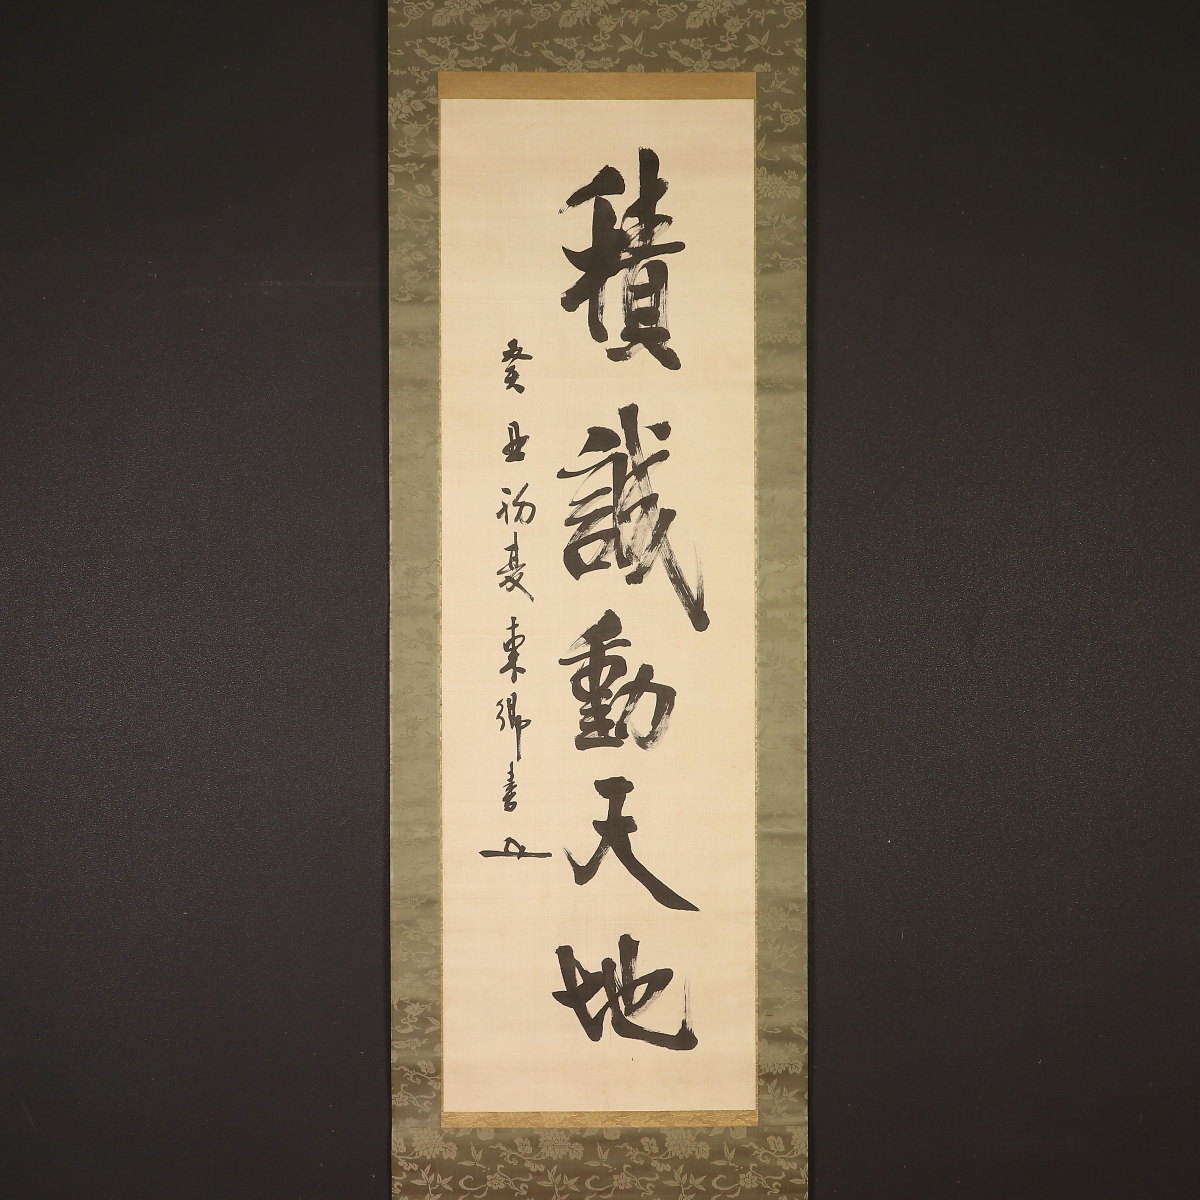 積誠動天地
癸丑初夏東郷書